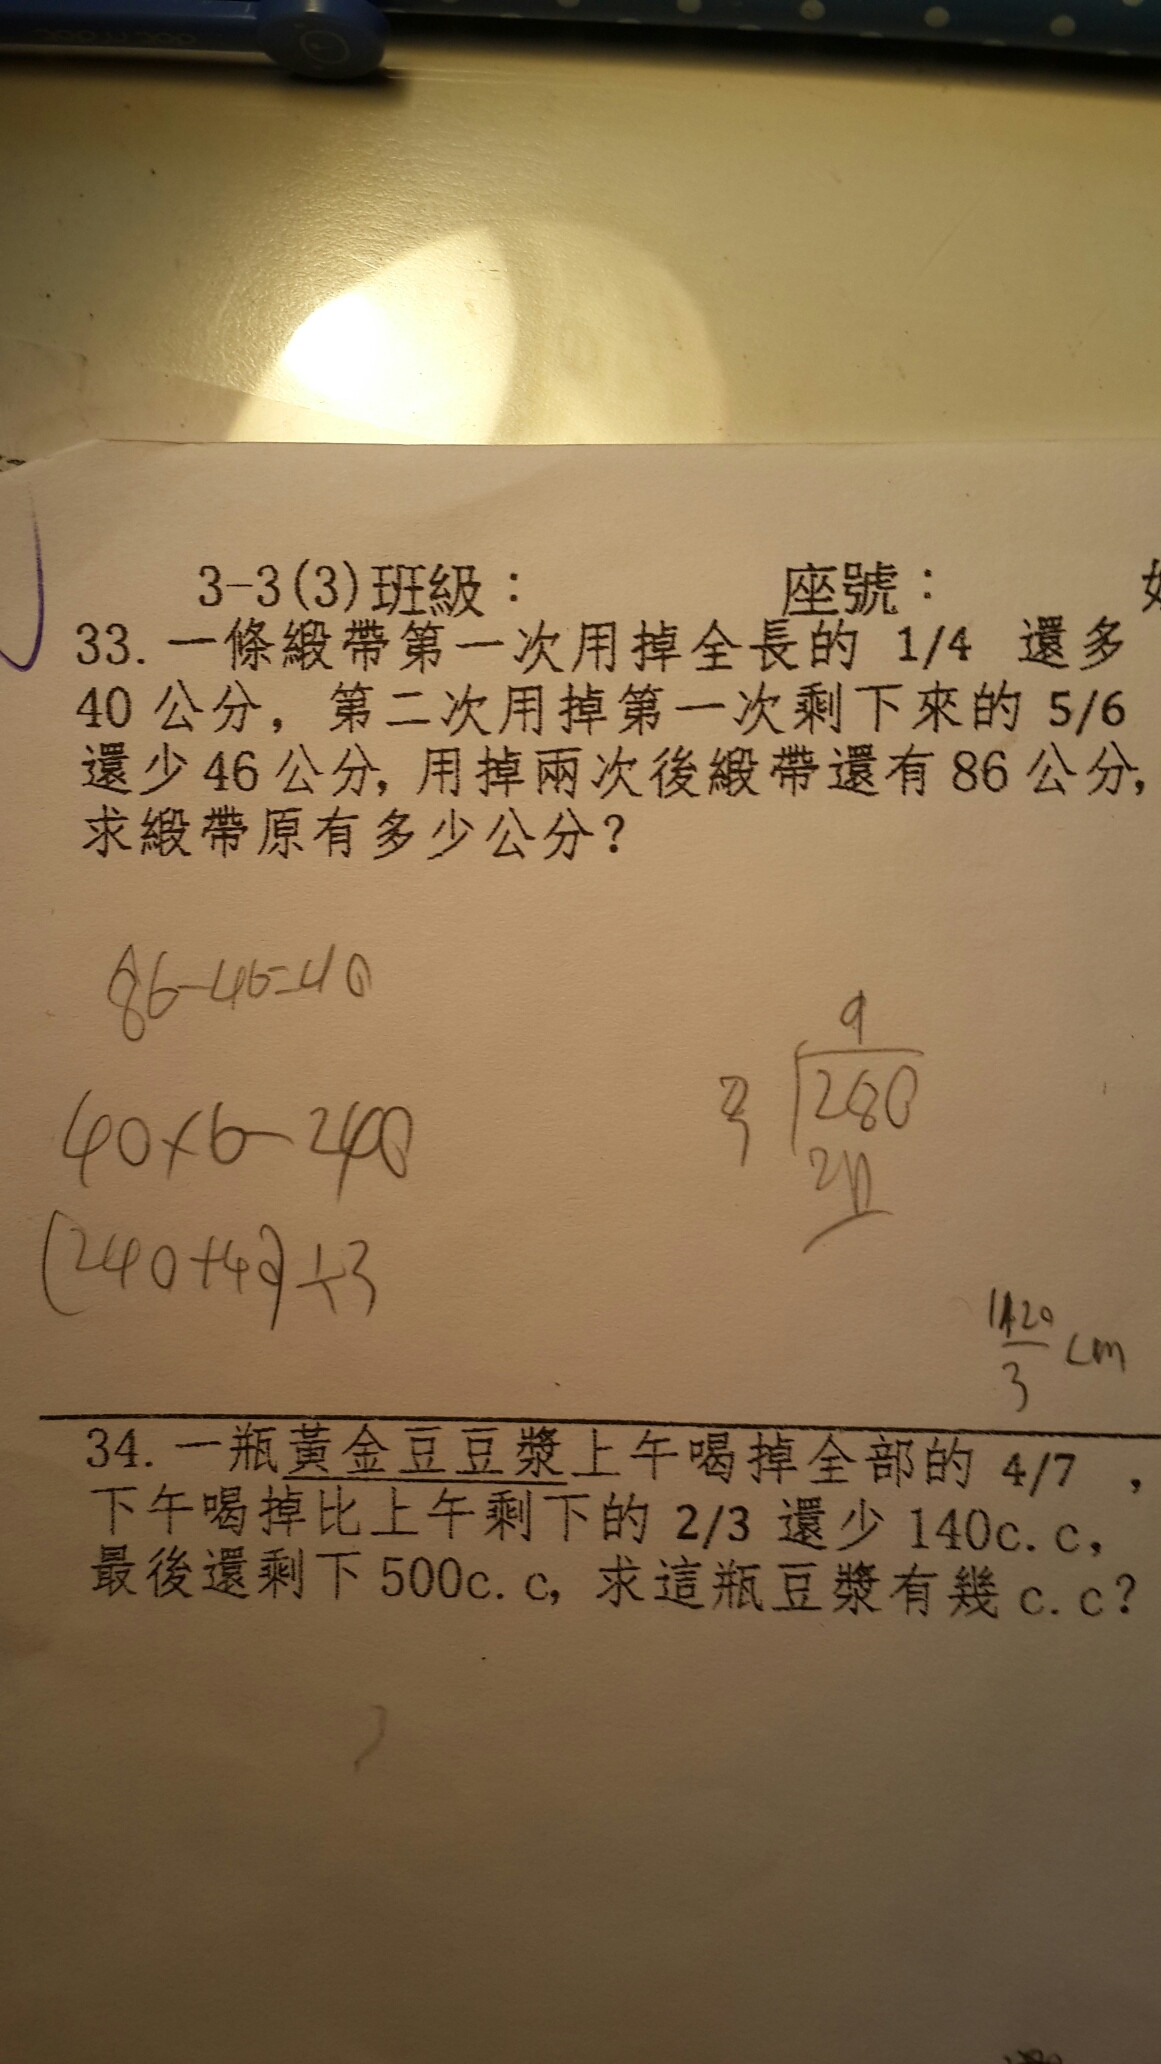 3-3(3)班級： 座號：
33. 一條緞帶第一次用掉全長的 1/4 還多
40 公分，第二次用掉第一次剩下來的 5/6
還少 46 公分，用掉兩次後緞帶還有 86 公分，
求緞帶原有多少公分？
86-46=40
40×6=240
(240+40)÷3
9
280
1120
3 cm
34. 一瓶黃金豆豆漿上午喝掉全部的 4/7 ，
下午喝掉比上午剩下的 2/3 還少 140c.c，
最後還剩下 500c.c，求這瓶豆漿有幾 c.c？